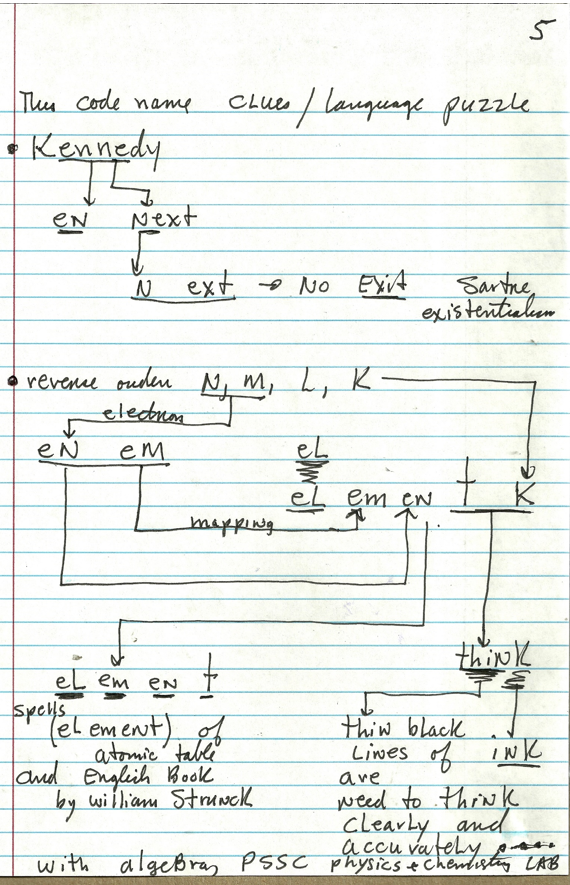 5
This code name clues / language puzzle
• Kennedy
eN Next
N ext → No Exit Sartre
existentialism
• reverse order N, M, L, K
electron
eN eM eL
eL em en t K
mapping
thinK
eL em en t
spells
(eLement) of
atomic table
and English Book
by william Strunck
thin black
Lines of inK
are
need to think
clearly and
accurately
with algeBra, PSSC physics + chemistry LAB